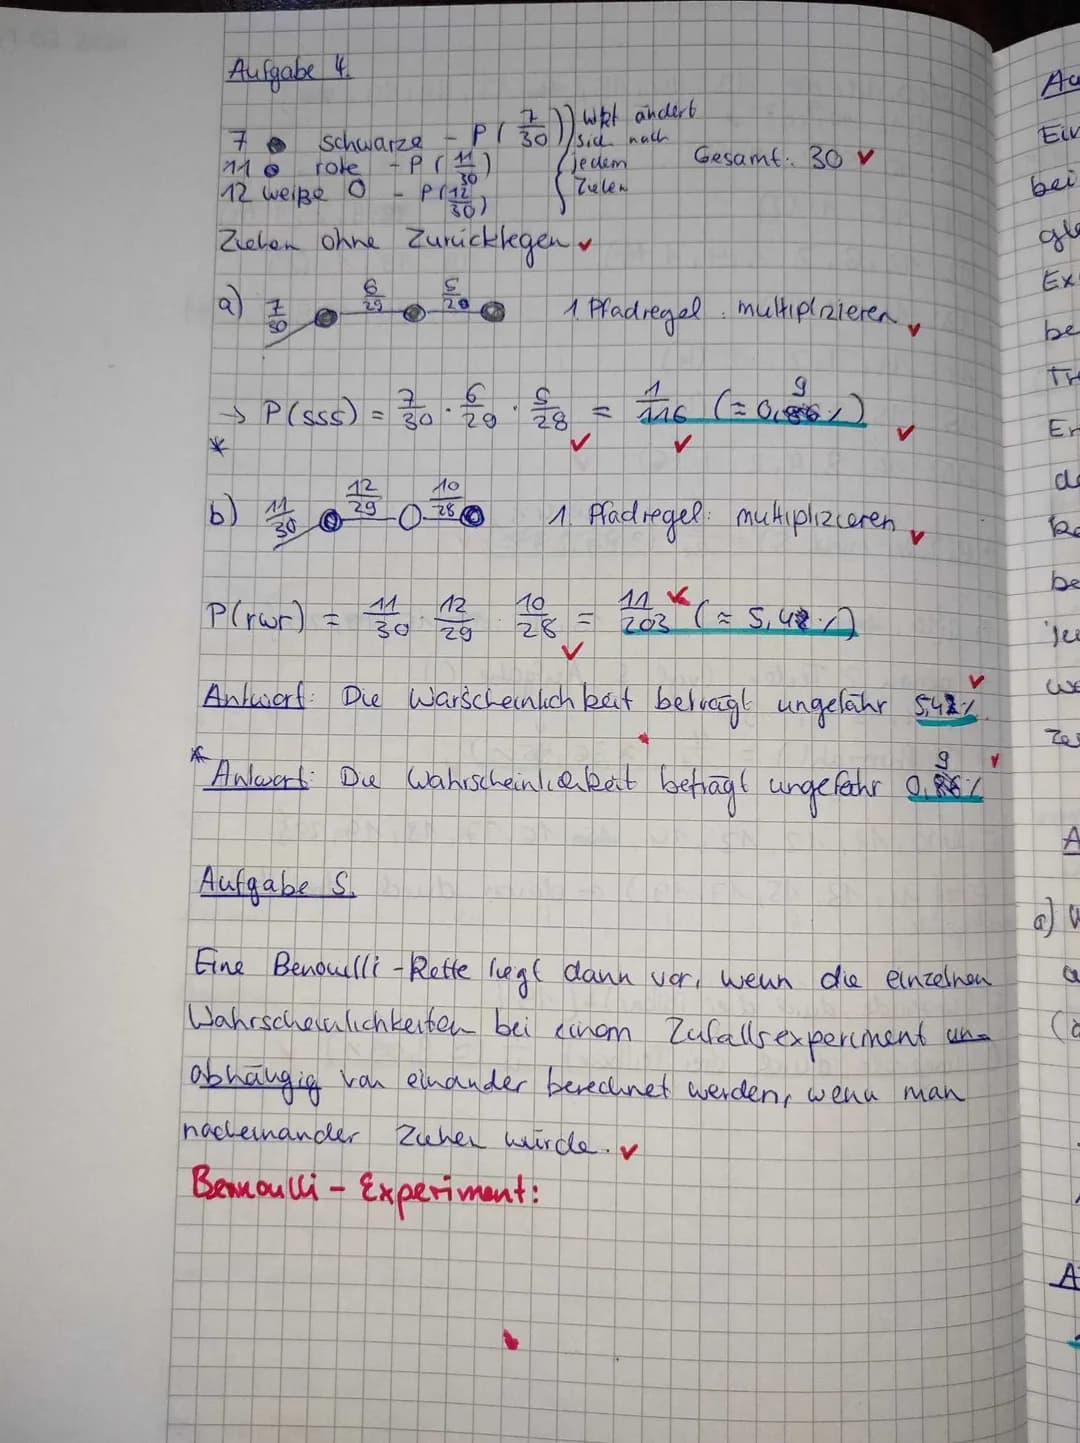 Aufgabe 4.
7 schwarze - P(7/30) Wkt ändert
11 rote - P(11/30) sich nach jedem Gesamt: 30 ✓
12 weiße O - P(12/30) Ziehen
Ziehen ohne Zurücklegen ✓
a) 7/30 6/29 5/28 1 Pfadregel: multiplizieren ✓
→ P(sss) = 7/30 · 6/29 · 5/28 = 1/116 (≈ 0,9%) ✓
*
b) 11/30 12/29 10/28 1 Pfadregel: multiplizieren ✓
P(rwr) = 11/30 · 12/29 · 10/28 = 11/203 (≈ 5,42%)
Antwort: Die Warscheinlichkeit beträgt ungefähr 5,42%
* Antwort: Die Wahrscheinlichkeit beträgt ungefähr 0,9%
Aufgabe 5.
Eine Benoulli-Kette liegt dann vor, wenn die einzelnen
Wahrscheinlichkeiten bei einem Zufallsexperiment un-
abhängig von einander berechnet werden, wenn man
nacheinander Ziehen würde. ✓
Bernoulli - Experiment:
Ein
bei
Ex
be
Er
be
a)